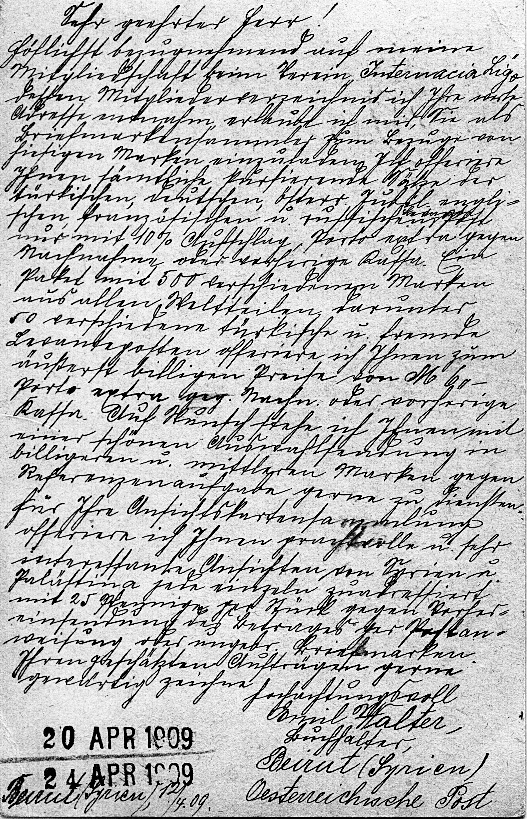 Sehr geehrter Herr!
Höflichst bezugnehmend auf meine
Mitgliedschaft beim Verein „Internacia Ligo"
dessen Mitgliederverzeichnis ich Ihre werte
Adresse entnahm, erlaube ich mir, Sie als
Briefmarkensammler zum Bezuge von
hiesigen Marken einzuladen. Ich offeriere
Ihnen sämtliche kursierende Sätze der
türkischen, deutschen, österr., engli-
schen, französischen u. russischen
nur mit 10% Aufschlag, Porto extra gegen
Nachnahme oder vorherige Kassa. Ein
Paket mit 500 verschiedenen Marken
aus allen Weltteilen, darunter
50 verschiedene türkische u. fremde
Levanteposten offeriere ich Ihnen zum
äußerst billigen Preise von M 60-
Porto extra geg. Nachn. oder vorherige
Kassa. Auf Wunsch stehe ich Ihnen mit
einer schönen Auswahlsendung in
billigeren u. mittleren Marken gegen
Referenzenaufgabe gerne zu Diensten.
Für Ihre Ansichtskartensammlung
offeriere ich Ihnen prachtvolle u. sehr
interessante Ansichten von Syrien u.
Palästina jede einzeln zuadressiert
mit 25 Pfennig per Stück gegen Vorher-
einsendung des Betrages per Postan-
weisung oder ungebr. Briefmarken.
Ihren geschätzten Aufträgen gerne
gewärtig zeichne
hochachtungsvoll
Emil Walter,
Buchhalter,
Beirut (Syrien)
Oesterreichische Post
20 APR 1909
24 APR 1909
Beirut (Syrien), 12/4.09.